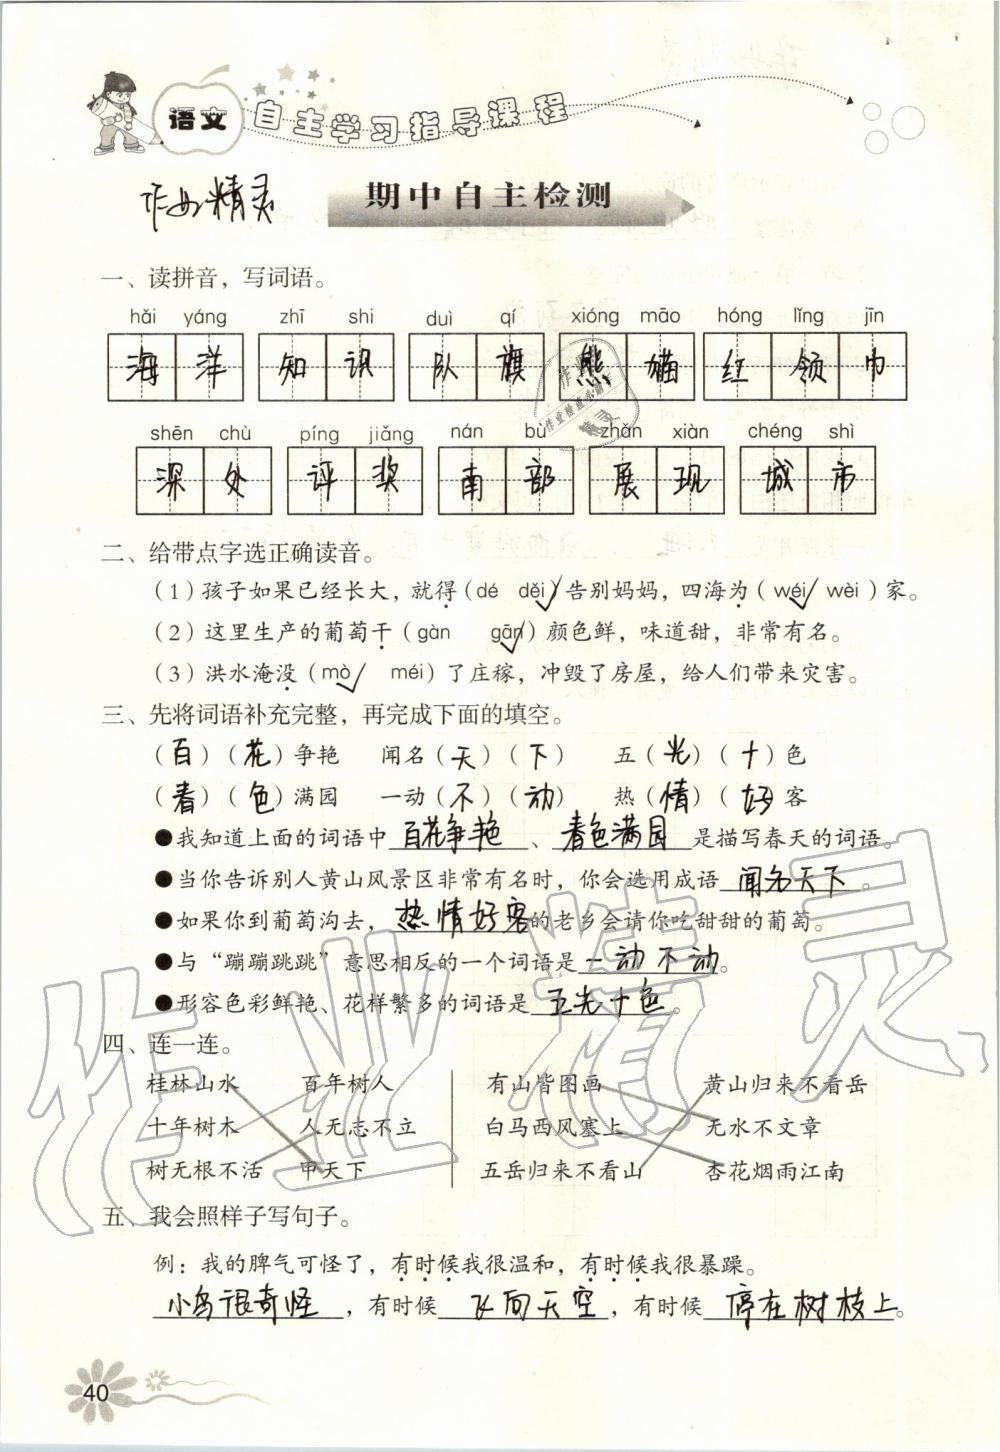 语文 自主学习指导课程
作业精灵
期中自主检测
一、读拼音，写词语。
hǎi yáng zhī shi duì qí xióng māo hóng lǐng jīn
海洋 知识 队旗 熊猫 红领巾
shēn chù píng jiǎng nán bù zhǎn xiàn chéng shì
深处 评奖 南部 展现 城市
二、给带点字选正确读音。
（1）孩子如果已经长大，就得（dé děi√）告别妈妈，四海为（wéi√ wèi）家。
（2）这里生产的葡萄干（gàn gān√）颜色鲜，味道甜，非常有名。
（3）洪水淹没（mò√ méi）了庄稼，冲毁了房屋，给人们带来灾害。
三、先将词语补充完整，再完成下面的填空。
（百）（花）争艳 闻名（天）（下） 五（光）（十）色
（春）（色）满园 一动（不）（动） 热（情）（好）客
●我知道上面的词语中百花争艳、春色满园是描写春天的词语。
●当你告诉别人黄山风景区非常有名时，你会选用成语闻名天下。
●如果你到葡萄沟去，热情好客的老乡会请你吃甜甜的葡萄。
●与“蹦蹦跳跳”意思相反的一个词语是一动不动。
●形容色彩鲜艳、花样繁多的词语是五光十色。
四、连一连。
桂林山水 百年树人 有山皆图画 黄山归来不看岳
十年树木 人无志不立 白马西风塞上 无水不文章
树无根不活 甲天下 五岳归来不看山 杏花烟雨江南
五、我会照样子写句子。
例：我的脾气可怪了，有时候我很温和，有时候我很暴躁。
小鸟很奇怪，有时候飞向天空，有时候停在树枝上。
40
作业精灵